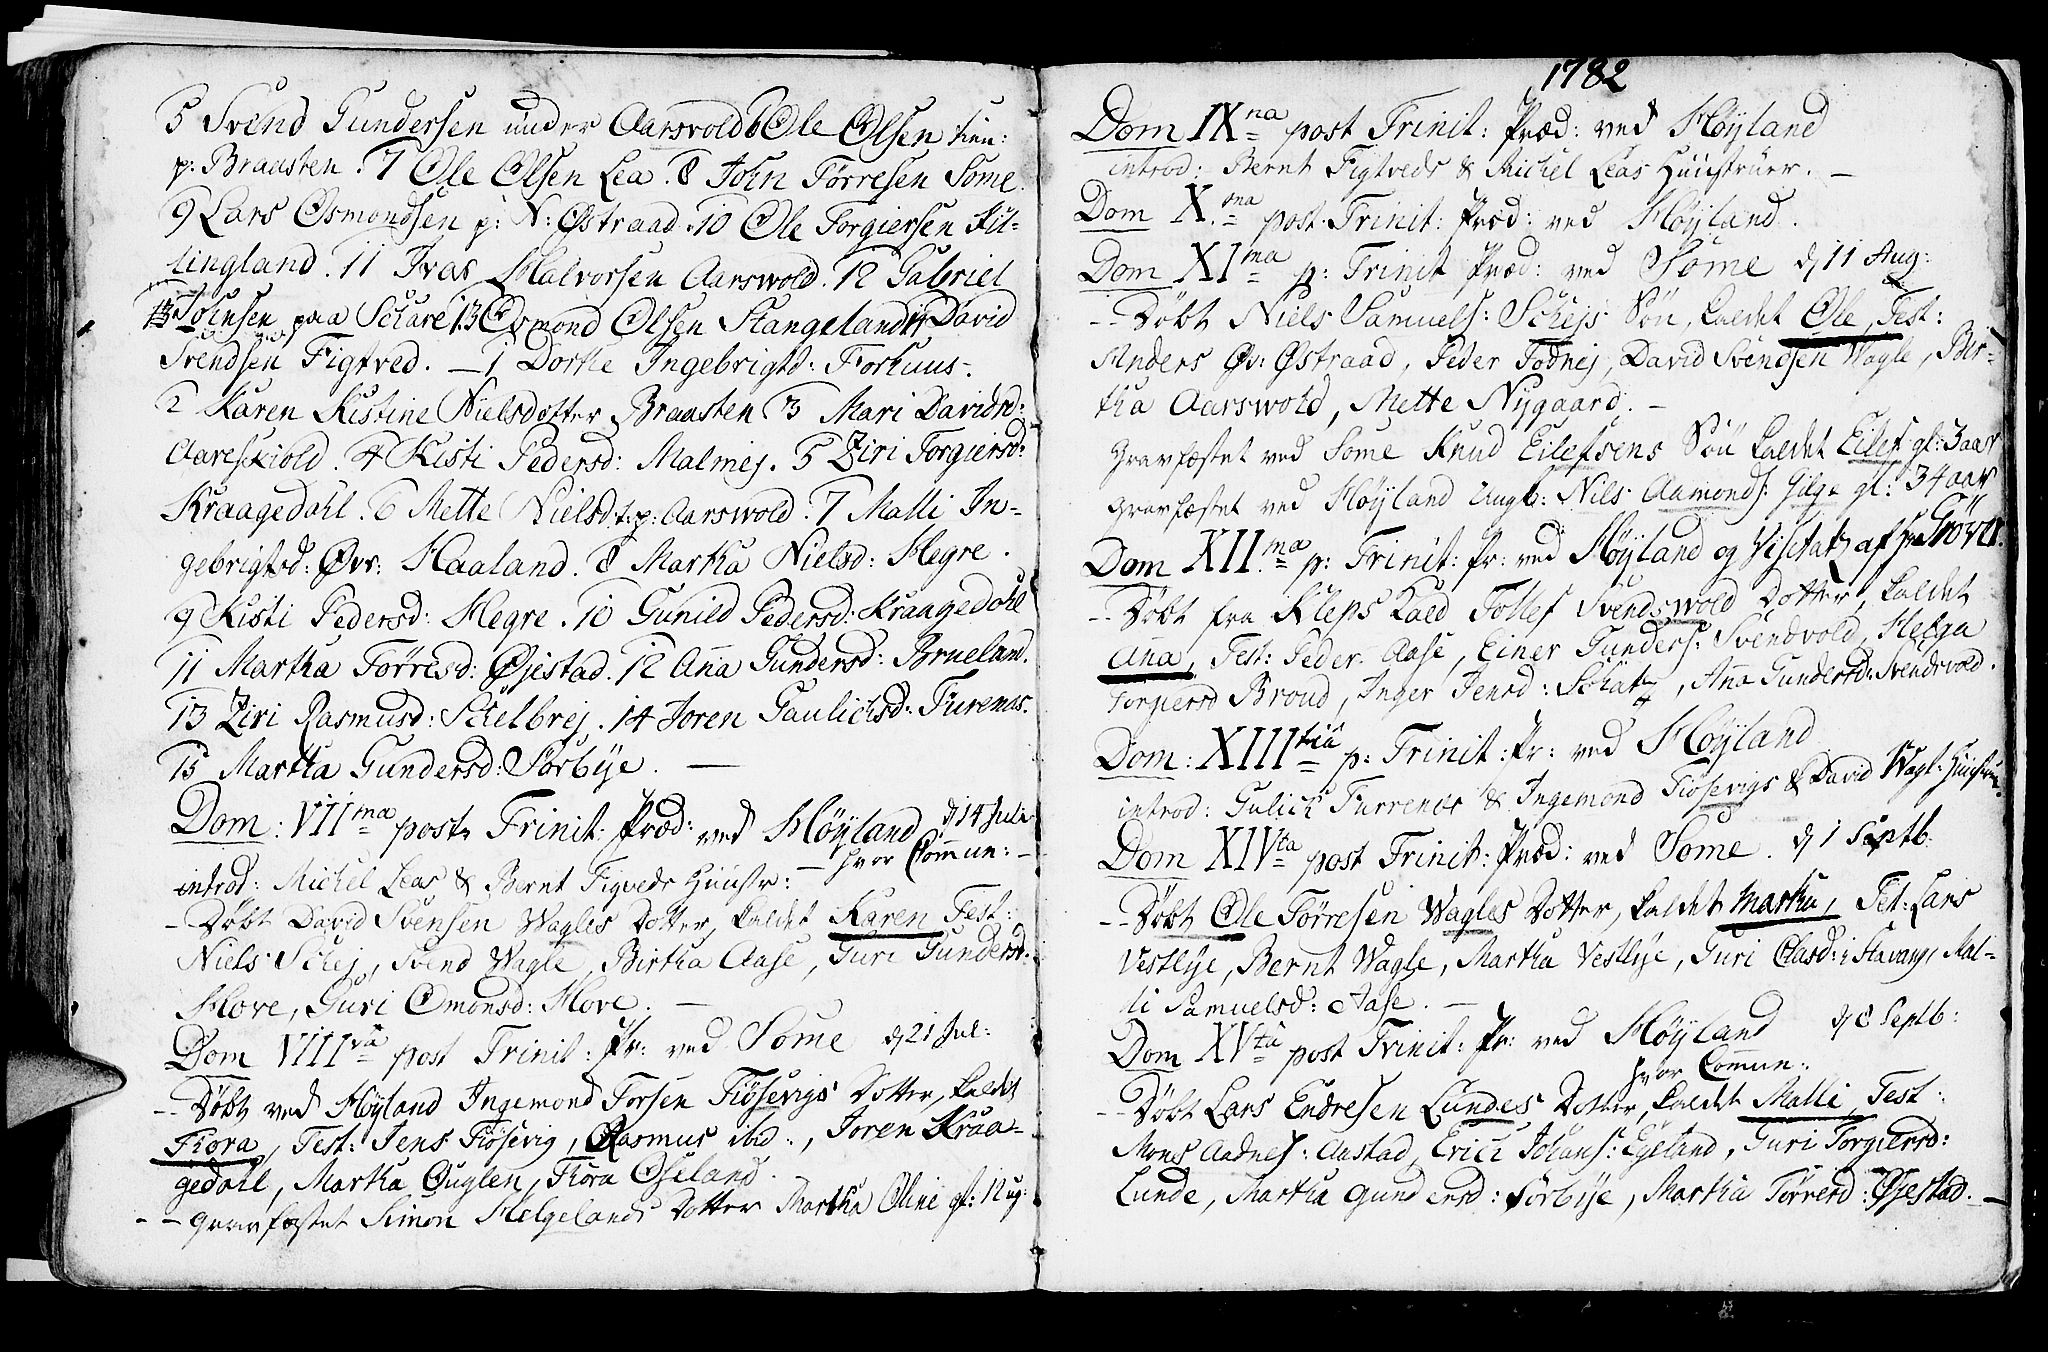 5 Svend Gundersen under Aarsvold 6 Ole Olsen tien:
p: Braasten. 7 Ole Olsen Lea. 8 John Törresen Some.
9 Lars Osmondsen p: N: Østraad. 10 Ole Torgiersen Kit-
lingland. 11 Ivar Halvorsen Aarswold. 12 Gabriel
Svensen paa Schare 13 Osmond Olsen Stangeland 14 David
Svendsen Figtved. — 1 Dorthe Ingebrigtd: Forhuus.
2 Karen Kistine Nielsdotter Braasten 3 Mari Davidsd:
Aareskiold. 4 Kisti Pedersd: Malmej. 5 Ziri Torgiersd:
Kraagedahl. 6 Mette Nielsd: t: p: Aarswold. 7 Malli In-
gebrigtsd: Øvr: Haaland. 8 Martha Nielsd: Hegre.
9 Kisti Pedersd: Hegre. 10 Gunild Pedersd: Kraagedahl
11 Martha Törresd: Øjestad. 12 Aña Gundersd: Brueland.
13 Ziri Rasmusd: Schelbrej. 14 Joren Gaulichsd: Furenas.
15 Martha Gundersd: Sörbye. —
Dom: VII ma post Trinit: Præd: ved Höyland d 14 Juli
hvor Comun: —
introd: Michel Leas & Bernt Figveds Huustr:
- Döbt David Svensen Wagles Dotter, kaldet Karen Test:
Niels Schej, Svend Wagle, Birtha Aase, Guri Gundersd:
Hove, Guri Omonsd: Hove. —
Dom VIII va post Trinit: Pr: ved Some d 21 Jul:
-- Döbt ved Höyland Ingemond Torsen Fiösevigs Dotter, kaldet
Thora, Test: Jens Fiösevig, Rasmus ibid:, Joren Kraa-
gedahl, Martha Quglen, Thora Oseland.
-- gravfæstet Simon Helgelands Dotter Martha Oline gl: 12 ug:
1782
Dom IX na post Trinit: Præd: ved Höyland
introd: Bernt Figtveds & Michel Leas Huustruer. —
Dom X. ma post Trinit: Præd: ved Höyland.
Dom XI ma p: Trinit Præd: ved Some d 11 Aug:
-- Döbt Niels Samuels: Schejs Sön, kaldet Ole, Test:
Anders Øv: Østraad, Peder Todnej, David Svendsen Wagle, Bir-
tha Aarswold, Mette Nygaard. —
Gravfæstet ved Some Knud Eilefsens Sön kaldet Eilef gl: 3 aar
gravfæstet ved Höyland Ungk: Nils Aamonds: Gilge gl: 34 aar
Dom XII. ma p: Trinit: Pr: ved Höyland og Visitatz af Hr
-- Döbt fra Kleps Kald Tollef Svendswold Dotter, kaldet
Ana, Test: Peder Aase, Einer Gunders: Svendvold, Helga
Torgiersd Broud, Inger Jensd: Schatz, Aña Gundersd: Svendsvold.
Dom: XIII tia p: Trinit: Pr: ved Höyland
introd: Gulich Furrenes & Ingemond Fiösevigs & David Wagl: Huustruer.
Dom XIV ta post Trinit: Præd: ved Some. d 1 Septb:
-- Döbt Ole Törresen Wagles Dotter, kaldet Martha, Test: Lars
Vestlye, Bernt Wagle, Martha Vestlye, Guri Clasd: i Stavang, Mal-
li Samuelsd: Aase. —
Dom XV ta post Trinit: Pr: ved Höyland d 8 Septb:
hvor Comun:
-- Döbt Lars Endresen Lundes Dotter, kaldet Malli, Test:
Mons Aadnes: Austad, Erich Johans: Egeland, Guri Torgiersd:
Lunde, Martha Gundersd: Sörbye, Martha Törresd: Øjestad. —